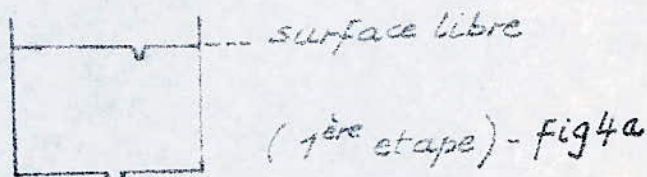 surface libre
(1ère etape) - fig4a